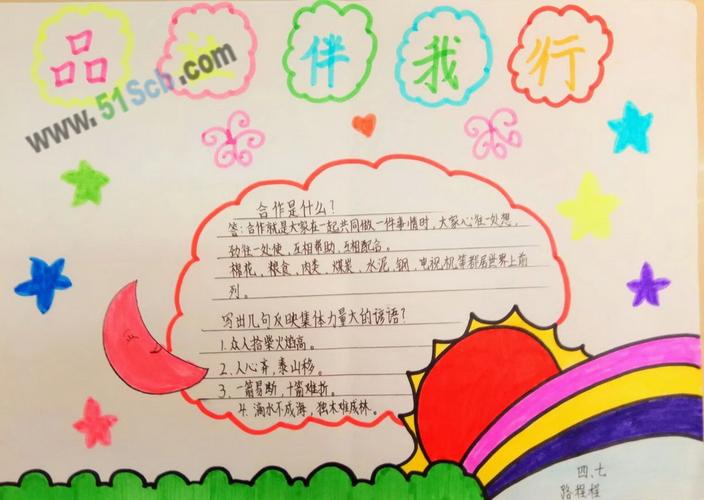 品社伴我行
www.51Scb.com
合作是什么?
答:合作就是大家在一起共同做一件事情时,大家心往一处想,
劲往一处使,互相帮助,互相配合。
棉花、粮食、肉类、煤炭、水泥、钢、电视机等都居世界上前
列。
写出几句反映集体力量大的谚语?
1.众人拾柴火焰高。
2.人心齐,泰山移。
3、一箭易断,十箭难折。
4.滴水不成海,独木难成林。
四、七
路程程